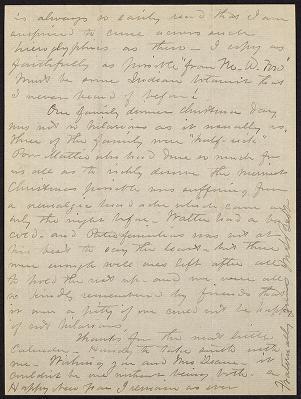 is always so easily read that I am
surprised to come across such
hieroglyphics as these - I copy as
faithfully as possible "from Mr. W.
Must be some Indian botanist that
I never heard of before!
Our family dinner Christmas day
was not so hilarious as it usually is,
three of the family were "half-sick".
Poor Mattie who had done so much for
us all as to richly deserve the merriest
Christmas possible was suffering from
a neuralgic headache which came on
only the night before. Walter had a bad
cold. and was not at
his best to say the least - but there
were enough well ones left after all
to hold the rest up - and we were all
so kindly remembered by friends that
it was a pity if one could not be happy
if not hilarious.
Thanks for the neat little
Calendar - Handy to take with
me - Wishing you and Mrs Deane - it
couldn't be one without being both - a
Happy New Year I remain as ever